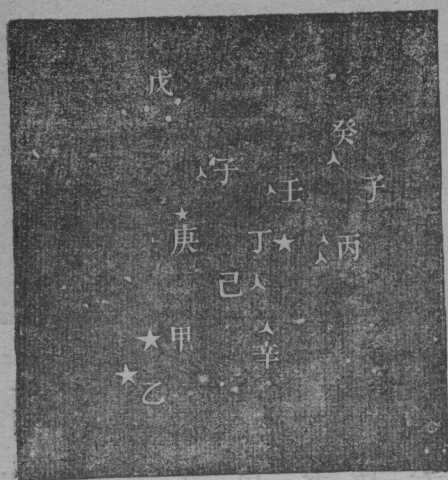 戊
癸
子
壬
子
庚
丁
丙
己
甲
辛
乙